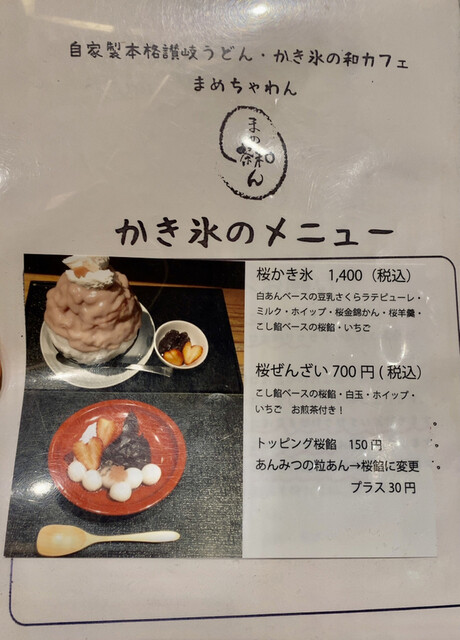 自家製本格讃岐うどん・かき氷の和カフェ
まめちゃわん
かき氷のメニュー
桜かき氷 1,400（税込）
白あんベースの豆乳さくらラテピューレ・
ミルク・ホイップ・桜金錦かん・桜羊羹・
こし餡ベースの桜餡・いちご
桜ぜんざい 700円（税込）
こし餡ベースの桜餡・白玉・ホイップ・
いちご お煎茶付き！
トッピング桜餡 150円
あんみつの粒あん→桜餡に変更
プラス30円